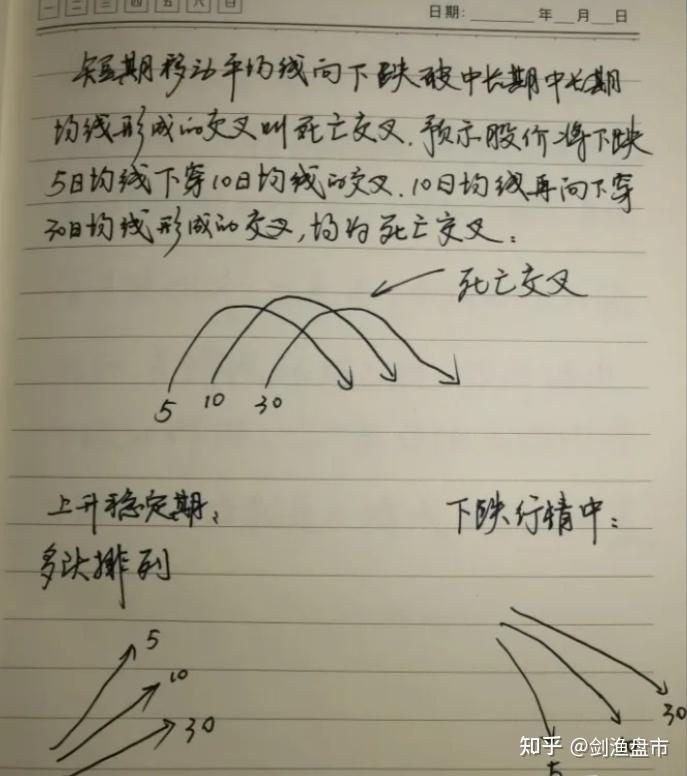 一 二 三 四 五 六 日
日期: 年 月 日
短期移动平均线向下跌破中长期中长期
均线形成的交叉叫死亡交叉.预示股价将下跌
5日均线下穿10日均线的交叉.10日均线再向下穿
30日均线形成的交叉,均为死亡交叉:
死亡交叉
5 10 30
上升稳定期、 下跌行情中:
多头排列
5
10
30
30
5
知乎 @剑渔盘市